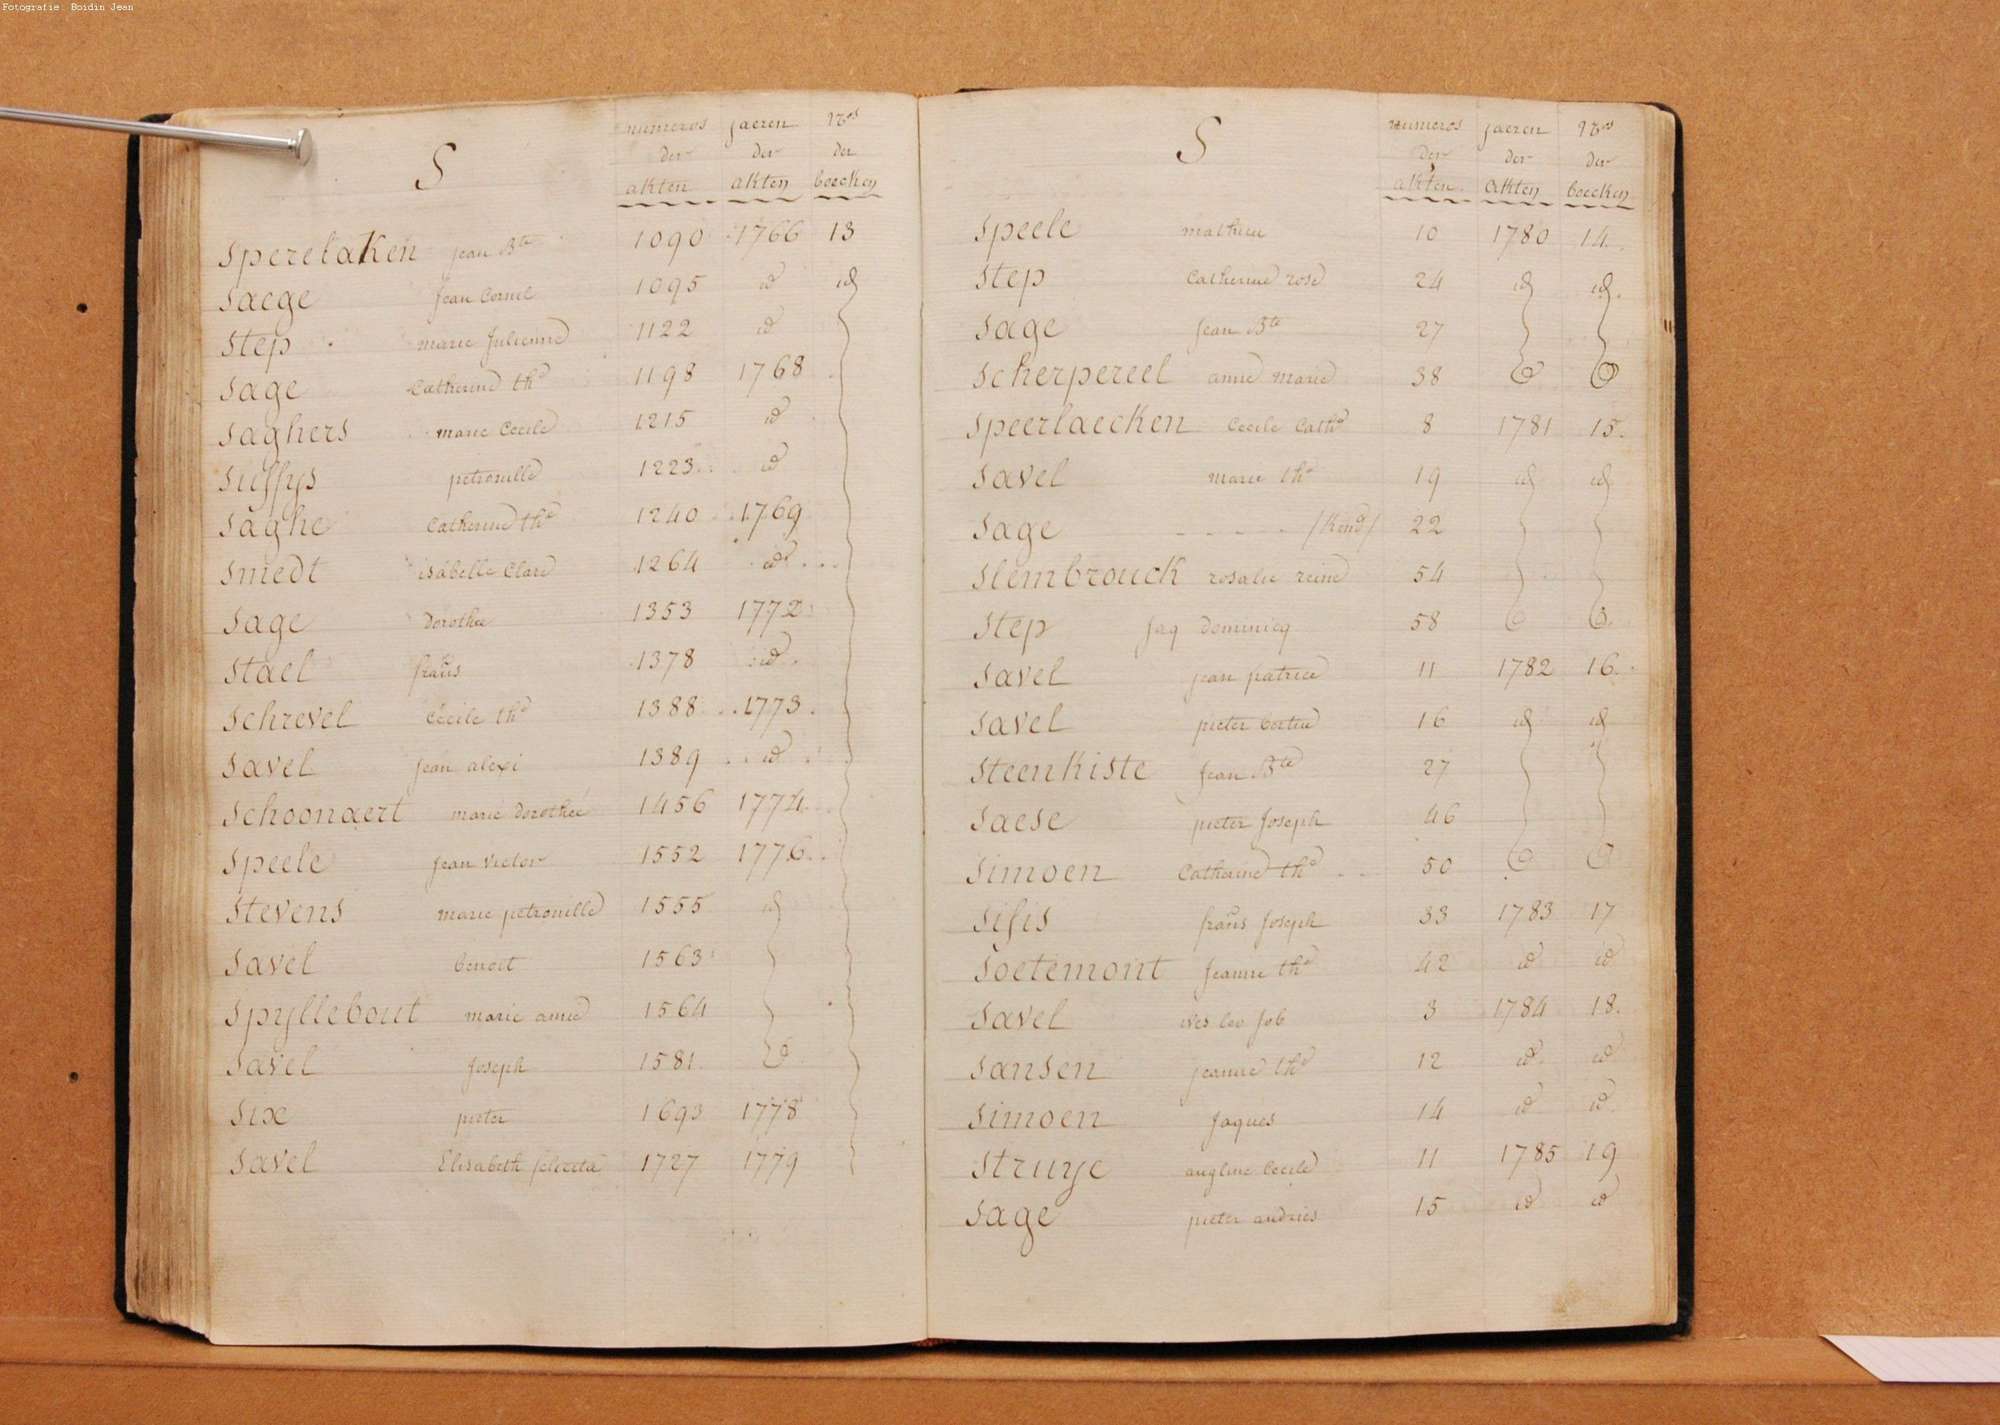 Fotografie: Boidin Jean
S
numeros jaeren nros
der der der
akten akten boecken
Sperelaken jean Bte 1090 1766 13
Saege jean Cornel 1095 id id
Step marie Julienne 1122 id
Sage Catherine the 1198 1768
Saghers marie Cecile 1215 id
petronille 1223 id
Saghe Catherine the 1240 1769
Smedt isabelle Clare 1264 id
Sage Dorothee 1353 1772
Stael frans 1378 id
Schrevel Cecile the 1388 1773
Savel jean alexi 1389 id
Schoonaert marie Dorothee 1456 1774
Speele jean victor 1552 1776
Stevens marie petronille 1555 id
Savel benoit 1563
Spyllebout marie anne 1564
Savel Joseph 1581 id
Six pieter 1693 1778
Savel Elisabeth 1727 1779
S
numeros jaeren nros
der der der
akten akten boecken
Speele mathieu 10 1780 14
Step Catherine rose 24 id id
Sage jean Bte 27
Scherpereel anne marie 38
Speerlaecken Cecile Cathe 8 1781 15
Savel marie the 19 id id
Sage /Kind/ 22
Slembrouck rosalie reine 54
Step Jaq Dominicq 58
Savel jean patrice 11 1782 16
Savel pieter 16 id id
Steenkiste Jean Bte 27
Saese pieter Joseph 46
Simoen Catherine the 50
Sisis frans Joseph 33 1783 17
Soetemont Jeanne the 42 id id
Savel ives leo Job 3 1784 18
Sansen jeanne the 12 id id
Simoen Jaques 14 id id
Struye angline Cecile 11 1785 19
Sage pieter andries 15 id id